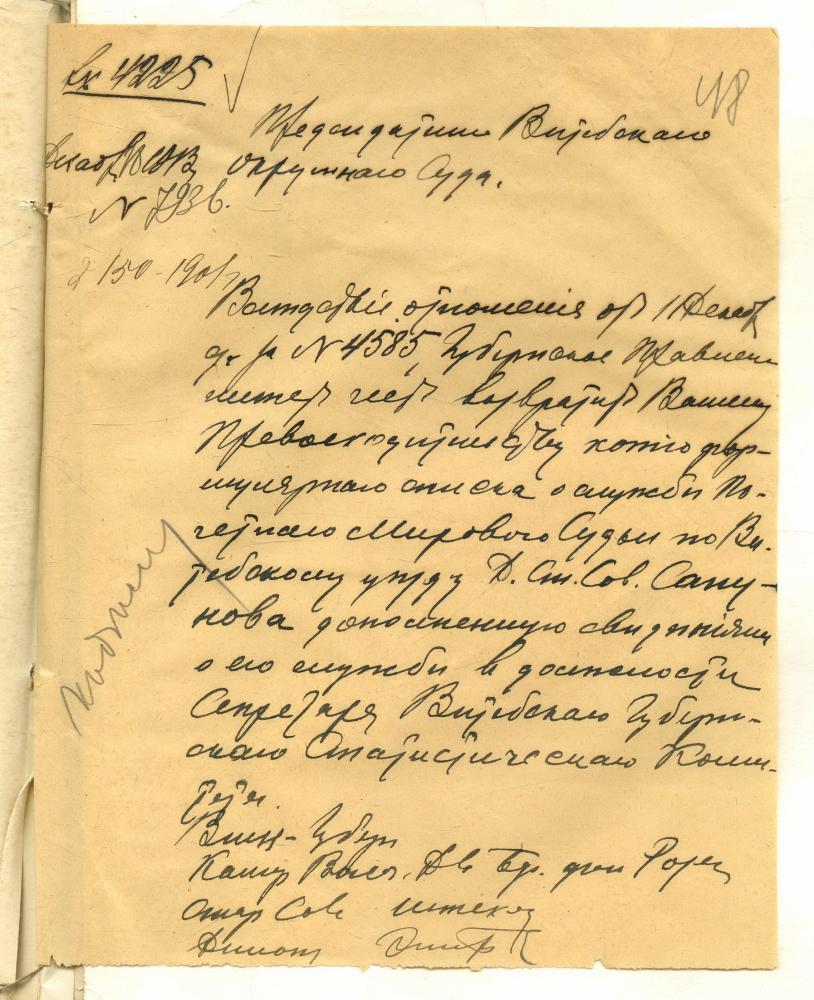 Вх 4225
48
Председателю Витебскаго
Окружнаго Суда.
N 7936.
2 150-1901 г
Вследствіе отношенія отъ 11 Декаб
за N 4585, Губернское Правлен
имеетъ честь возвратить Вашему
Превосходительству копію фор-
мулярнаго списка о службе По-
четнаго Мирового Судьи по Ви-
тебскому уезду Д. Ст. Сов. Сапу-
нова дополненную сведеніями
о его службе в должности
Секретаря Витебскаго Губерн-
скаго Статистическаго Коми-
тета.
Вице-Губер
Камер Высоч. Дв. фон
Стар Сов